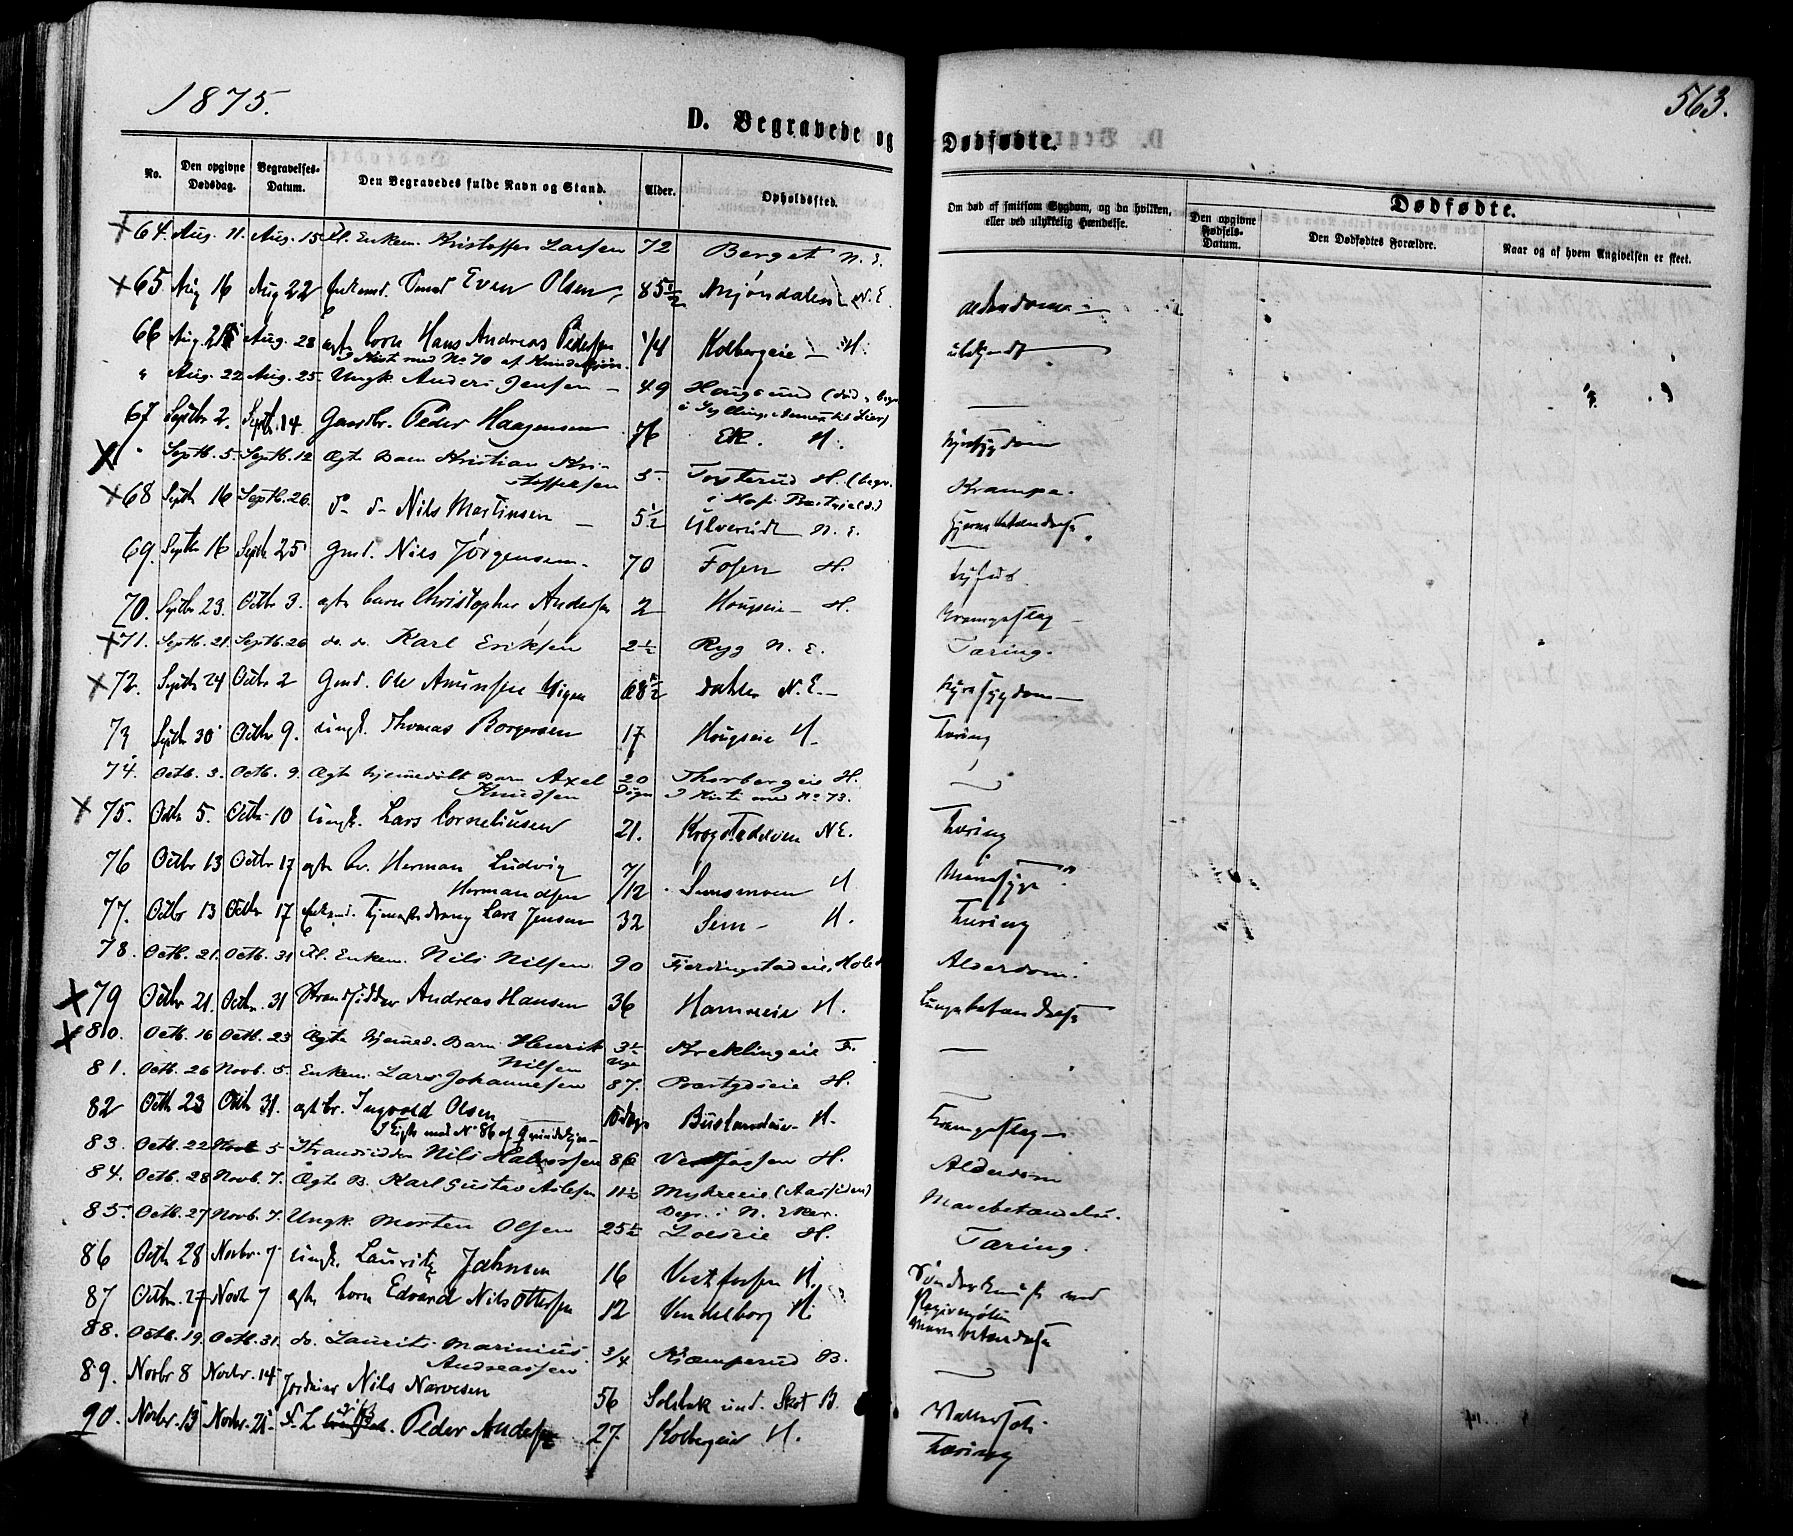 1875.
563.
D. Begravede og Dødfødte.
No.
Den opgivne Dødsdag.
Begravelses-Datum.
Den Begravedes fulde Navn og Stand.
Alder.
Opholdssted.
Om død af smitsom Sygdom, og da hvilken, eller ved ulykkelig Hændelse.
Dødfødte.
Den opgivne Fødsels-Datum.
Den Dødfødtes Forældre.
Naar og af hvem Angivelsen er skeet.
64. Aug. 11. Aug. 15 Fl. Enkem. Kristoffer Larsen 72 Berget N. E.
65 Aug 16 Aug 22 Even Olsen 85 1/2 Mjøndalen N. E. Alderdom
66 Aug. 25 Aug. 28 ægt. barn Hans Andreas Pedersen 1/4 Kolbergeie H. ubekjendt
I Kist med No 70 af Kvindekjøn.
" Aug. 22 Aug. 25. Ungk. Anders Jensen 49 Hougsund (død, begr.
67 Septbr 2. Septbr. 14. Gaardbr. Peder Haagensen 76 Ek. H.
" Septb. 5. Septb. 12 Ægte Barn Kristian Kristoffersen 5 Tryterud H. (begr. Krampe.
68 Septb 16 Septb. 26. do do Nils Martinsen 5 1/2 Ulverud N. E. Hjernebetændelse
69. Septbr 16 Septb 25 Gmd. Nils Jørgensen. 70 Fosen H. Tyfus
70. Septbr 23. Octbr 3. ægte barn Christopher Andersen 2 Hougseie H. Krampeslag
71. Septb. 21. Septb. 26 do. do. Karl Eriksen 2 1/2 Ryg N. E. Tæring.
72. Septbr 24 Octbr 2 Gmd. Ole Amunsen 68 1/2 Dahler N. E.
73 Septbr 30 Octbr 9. ungk. Thomas Borgersen 17 Hougseie H. Tæring
74. Octb. 3. Octb. 9. Ægte hjemedøbt Barn Axel Knudsen 20 Døgn Thorbergeie H.
I Kiste med No 73.
75. Octbr 5. Octbr 10 ungk. Lars Corneliusen 21. Krogstadelven N E. Tæring
76 Octbr 13 Octbr 17 ægte br. Herman Ludvig Hermandsen 7/12 Semsmoen H.
77. Octbr 13 Octbr 17 Tjenestedreng Lars Jensen 32 Sem H. Tæring
78. Octb. 21. Octb. 31 Fl. Enkem. Nils Nilsen 90 Fjerdingstadeie, Hole Alderdom.
79 Octbr 21. Octbr. 31 Strandsidder Andreas Hansen 36 Hamreeie H. Lungebetændelse
80. Octb. 16 Octb. 23 Ægte hjemmed. Barn Henrik Nilsen 3 1/2 Uge Kreklingeie F.
81. Octb. 26 Novb. 5. Enkem. Lars Johannesen 87. Præstgdseie H.
82 Octb 23 Octb 31. ægt br. Ingvald Olsen H. Krampeslag
I Kiste med No 86 af Qvindekjøn
83. Octb. 22 Novb 5 Strandsidder Nils Halvorsen 86 Vestfossen H. Alderdom
84. Octb. 28 Novb. 7. Ægte B. Karl Gustav 11 1/2 Myhreeie (Aassiden) Mavebetændelse.
Begr. i N. Eker.
85. Octb. 27 Novb. 7. Ungk. Morten Olsen 25 1/2 Loeseie H. Tæring.
86 Octb 28 Novbr. 7 ungk. Lauritz Jahnsen 16 Vestfossen H.
87 Octbr. 27 Novb 7 ægte barn Edvard Nils Ottersen 12 Vendelborg H.
88. Octb. 19. Octb. 31. do. Laurits Marinius Andreassen 3/4 Kjæmperud B.
89. Novbr 8 Novbr. 14 Nils Narvesen 56 Solbak und. Skot B. Vattersot
90. Novbr. 13 Novbr. 21 Peder Andersen 27 Kolbergeie H. Tæring